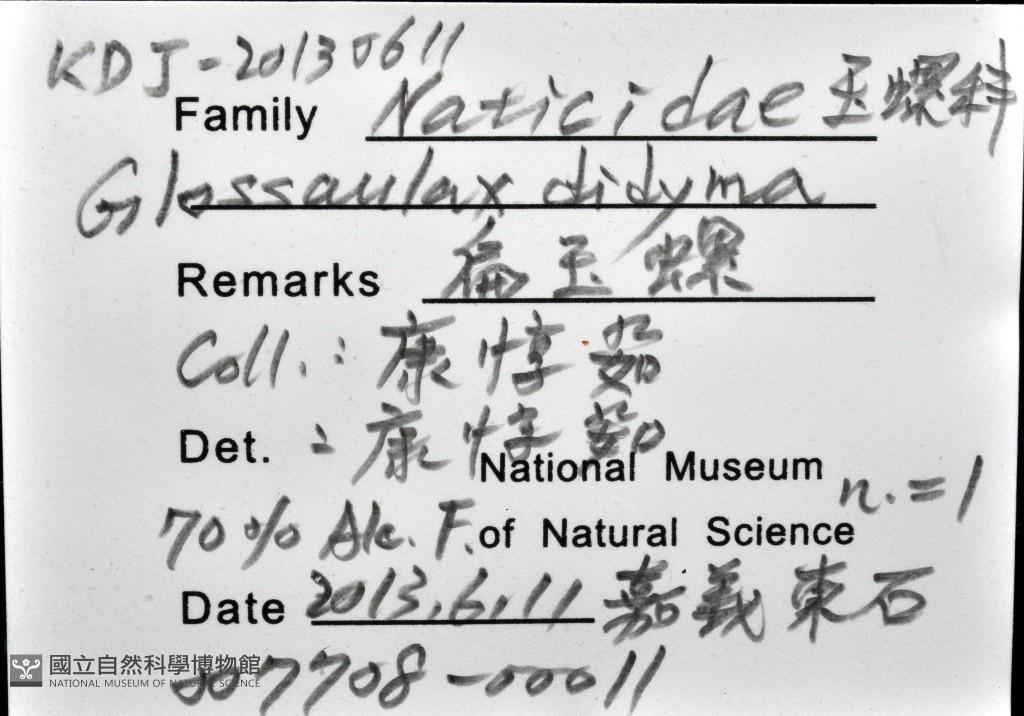 KDJ-20130611
Family Naticidae 玉螺科
Glossaulax didyma
Remarks 扁玉螺
Coll.: 康惇茹
Det. : 康惇茹
National Museum n.=1
70% Alc. F. of Natural Science
Date 2013.6.11 嘉義東石
國立自然科學博物館
NATIONAL MUSEUM OF NATURAL SCIENCE
007708-00011